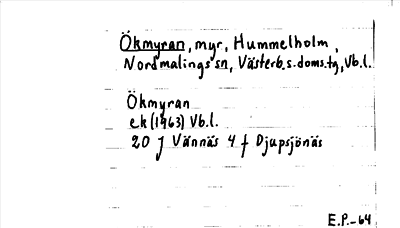 Ökmyran, myr, Hummelholm,
Nordmalings sn, Västerb.s.doms.tg, Vb.l.
Ökmyran
ek (1963) Vb.l.
20 J Vännäs 4 f Djupsjönäs
E.P.-64